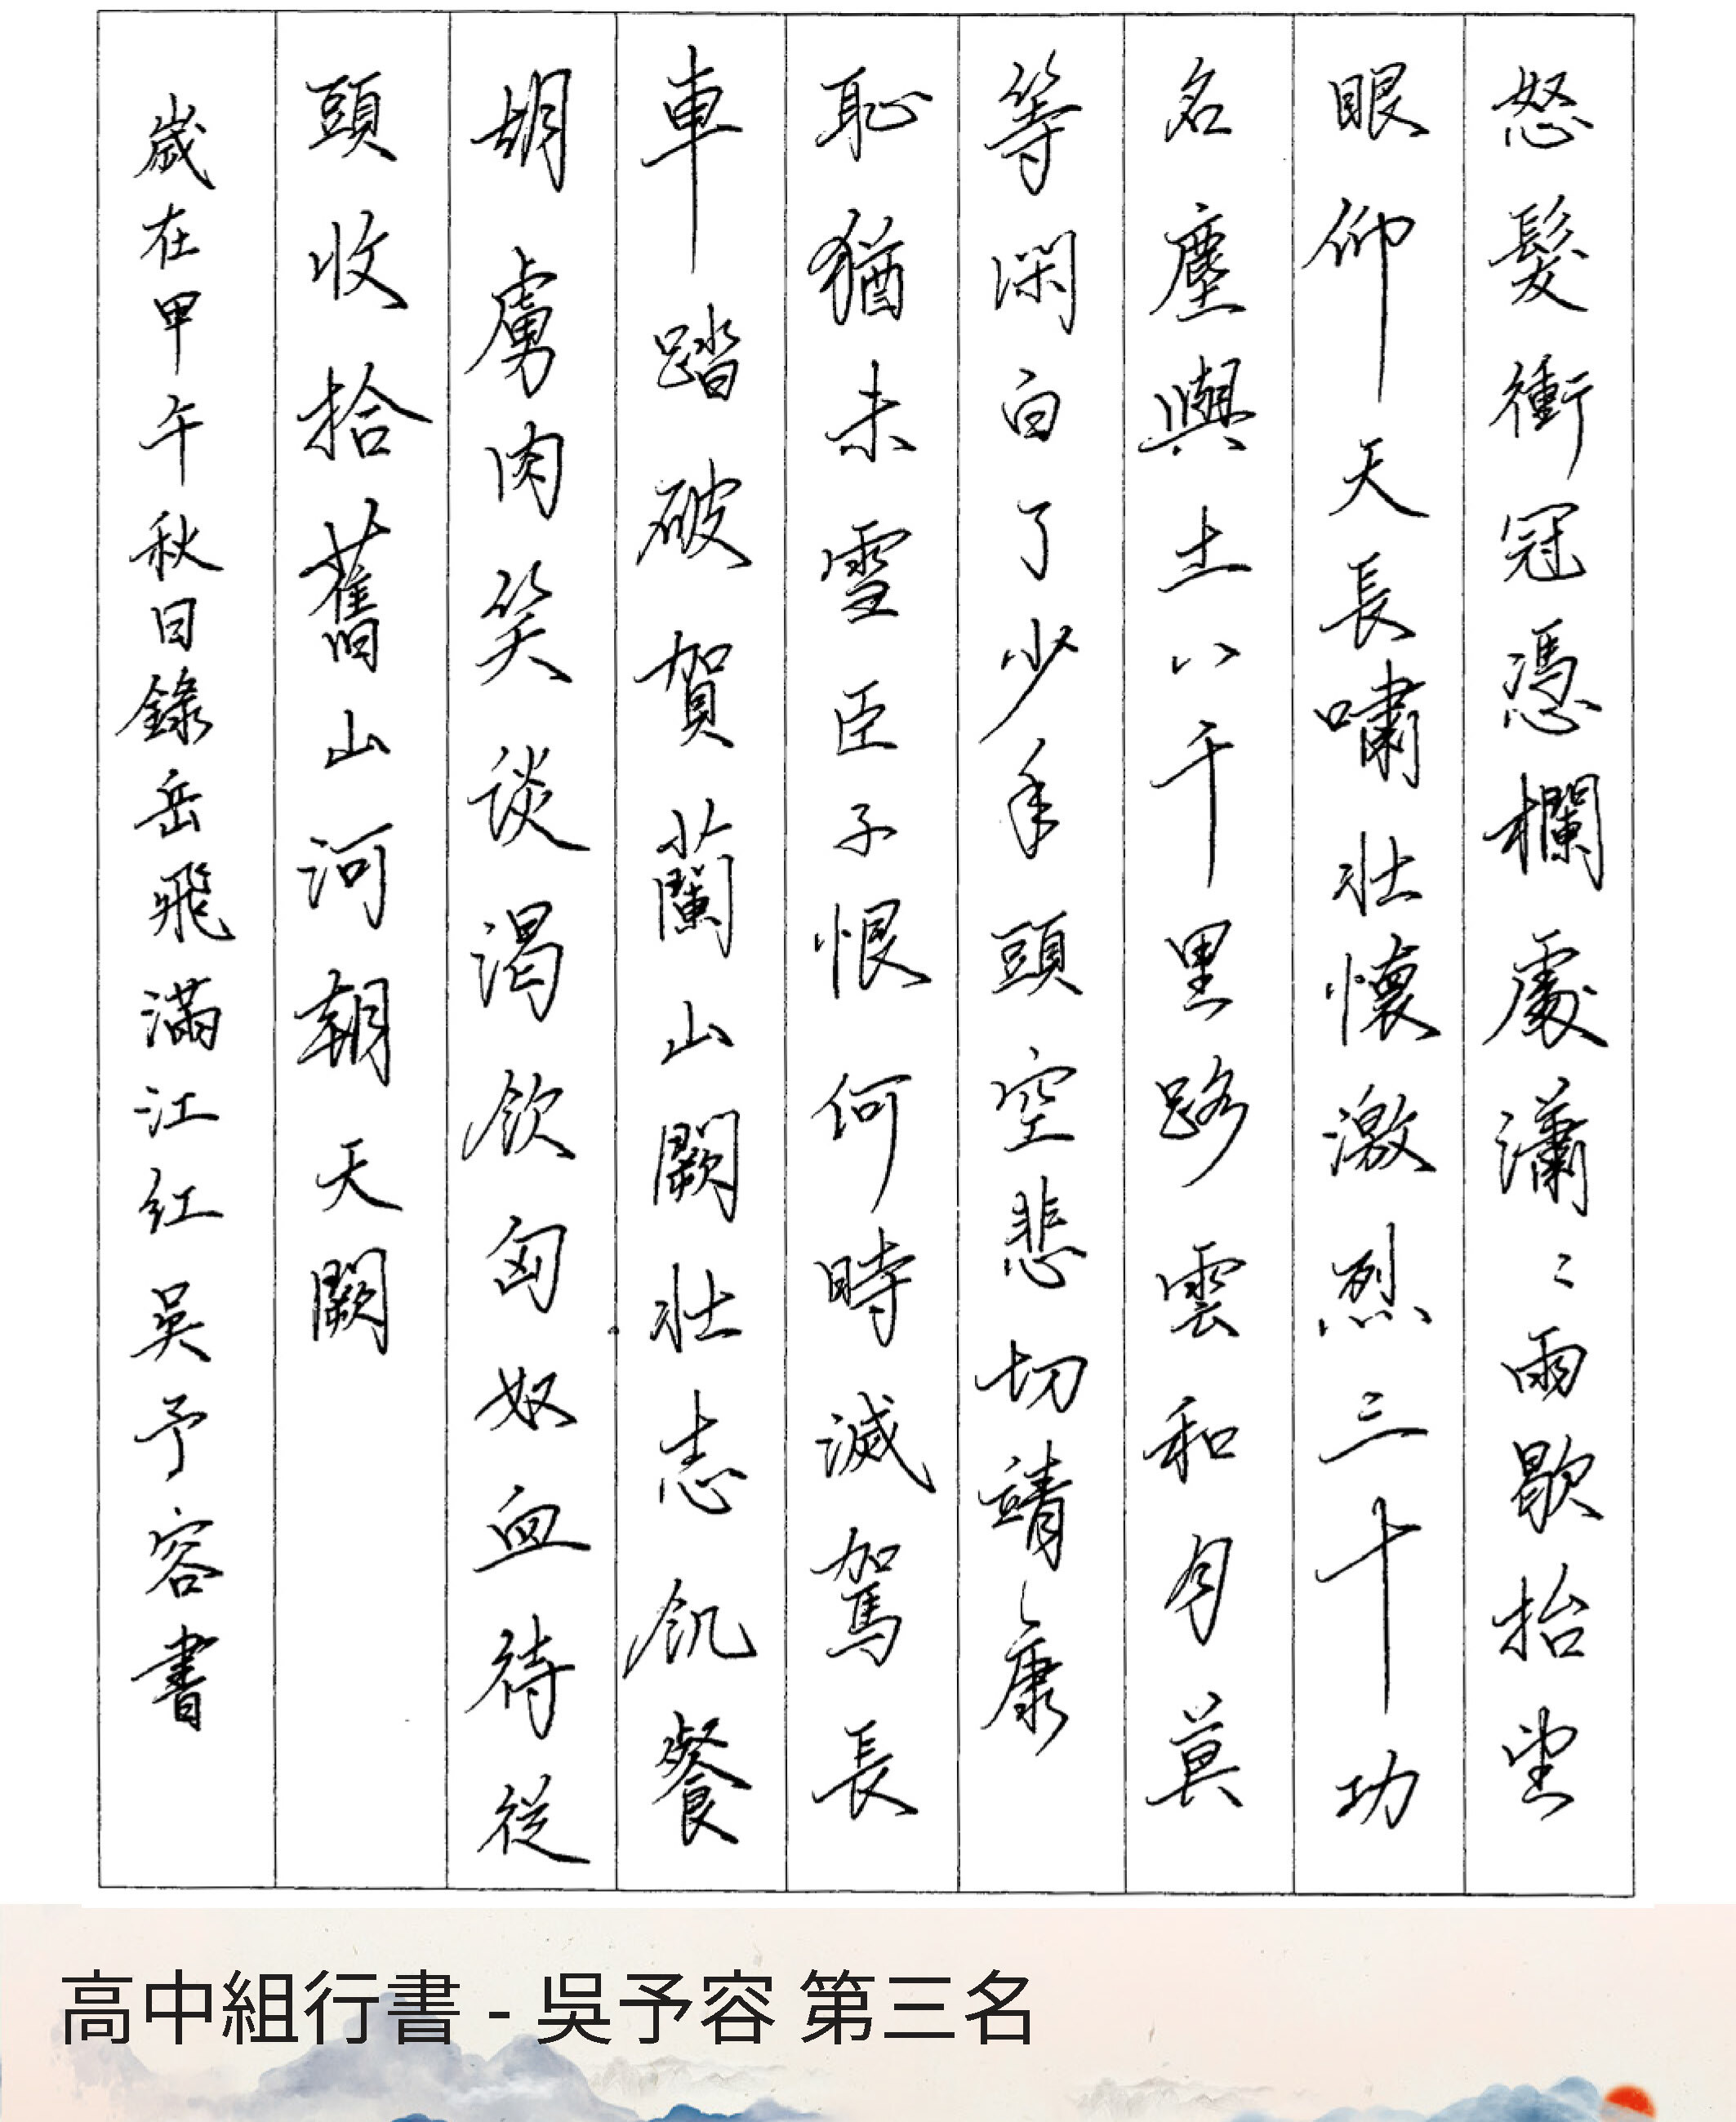 怒髮衝冠憑欄處瀟〻雨歇抬望
眼仰天長嘯壯懷激烈三十功
名塵與土八千里路雲和月莫
等閑白了少年頭空悲切靖康
恥猶未雪臣子恨何時滅駕長
車踏破賀蘭山闕壯志飢餐
胡虜肉笑談渴飲匈奴血待從
頭收拾舊山河朝天闕
歲在甲午秋日錄岳飛滿江紅吳予容書
高中組行書 - 吳予容 第三名